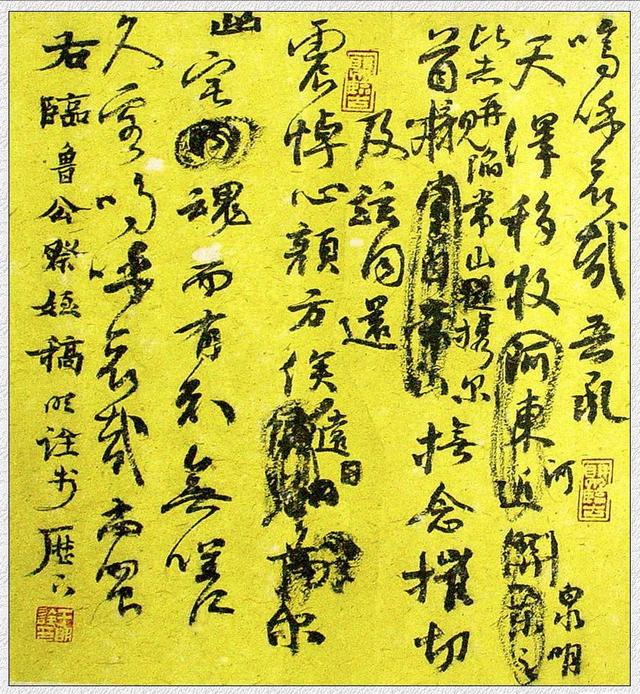 嗚呼哀哉吾承
天澤移牧阿東近
河
泉明
比者再陷常山攜爾
首櫬
撫念摧切
及茲同還
震悼心顏方俟
遠日
爾
幽宅魂而有知無嗟
久客嗚呼哀哉尚饗
右臨魯公祭姪稿明詮書歷下